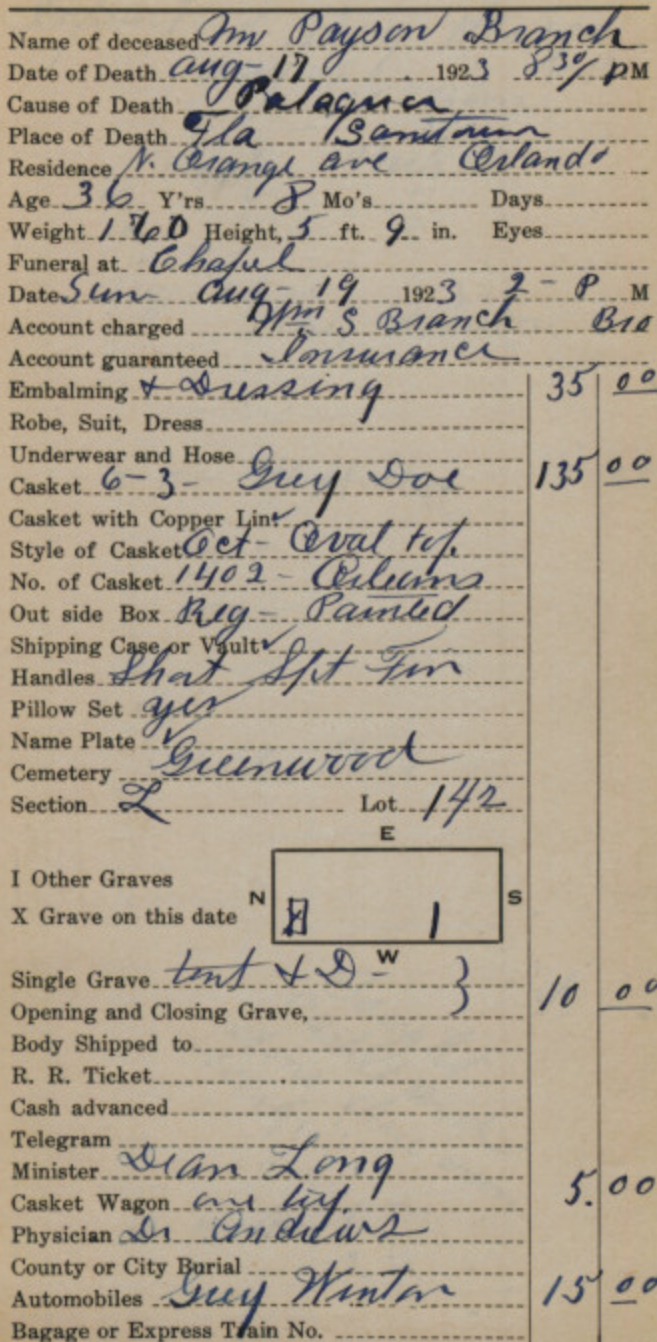 Name of deceased Mr Payson Branch
Date of Death Aug - 17 1923 8 30/ PM
Cause of Death Palagria
Place of Death Fla Sanitarium
Residence N. Orange ave Orlando
Age 36 Y'rs 8 Mo's Days
Weight 160 Height, 5 ft. 9 in. Eyes
Funeral at Chapel
Date Sun Aug - 19 1923 2 - P M
Account charged Wm S Branch Bro
Account guaranteed Insurance
Embalming & Dressing 35 00
Robe, Suit, Dress
Underwear and Hose
Casket 6-3- Grey Doe 135 00
Casket with Copper Lin
Style of Casket Oct - Oval top
No. of Casket 1402 - Orleans
Out side Box Reg - Painted
Shipping Case or Vault
Handles Short
Pillow Set yes
Name Plate
Cemetery Greenwood
Section L Lot 142
E
I Other Graves
N S
X Grave on this date X I
W
Single Grave tent & D - } 10 00
Opening and Closing Grave,
Body Shipped to
R. R. Ticket
Cash advanced
Telegram
Minister Dean Long
Casket Wagon 5.00
Physician Dr Andrews
County or City Burial
Automobiles Grey Winton 15 00
Bagage or Express Train No.